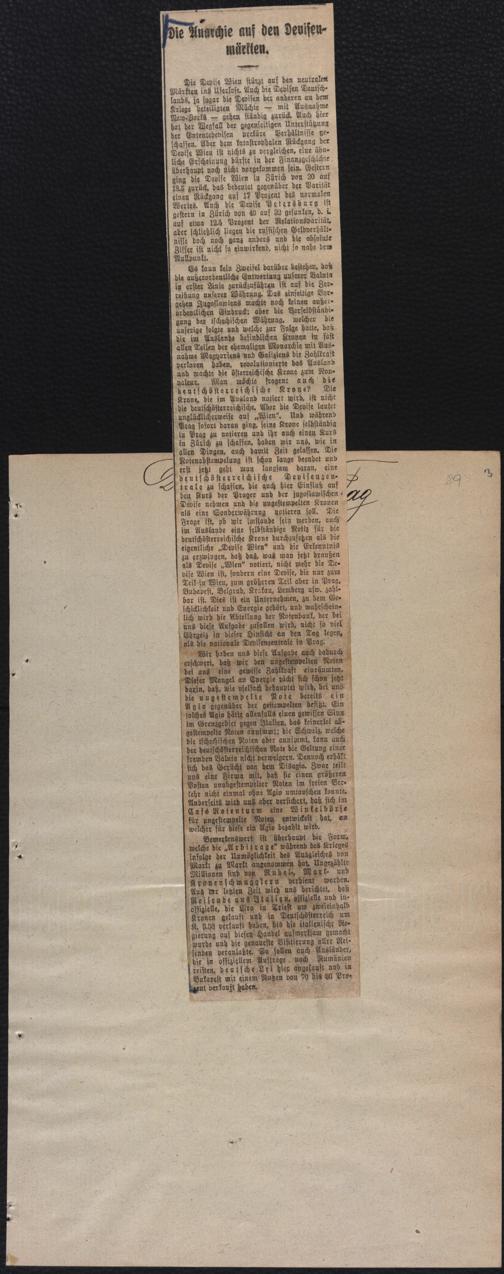 Die Anarchie auf den Devisen-
märkten.
Die Devise Wien stürzt auf den neutralen
Märkten ins Uferlose. Auch die Devisen Deutsch-
lands, ja sogar die Devisen der anderen an dem
Kriege beteiligten Mächte — mit Ausnahme
New-Yorks — gehen ständig zurück. Auch hier
hat der Wegfall der gegenseitigen Unterstützung
der Ententedevisen prekäre Verhältnisse ge-
schaffen. Aber dem katastrophalen Rückgang der
Devise Wien ist nichts zu vergleichen, eine ähn-
liche Erscheinung dürfte in der Finanzgeschichte
überhaupt noch nicht vorgekommen sein. Gestern
ging die Devise Wien in Zürich von 20 auf
18.5 zurück, das bedeutet gegenüber der Parität
einen Rückgang auf 17 Prozent des normalen
Wertes. Auch die Devise Petersburg ist
gestern in Zürich von 40 auf 33 gesunken, d. i.
auf etwa 12.5 Prozent der Relationsparität,
aber schließlich liegen die russischen Geldverhält-
nisse doch noch ganz anders und die absolute
Ziffer ist nicht so einwirkend, nicht so nahe dem
Nullpunkt.
Es kann kein Zweifel darüber bestehen, daß
die außerordentliche Entwertung unserer Valuta
in erster Linie zurückzuführen ist auf die Zer-
reißung unserer Währung. Das einseitige Vor-
gehen Jugoslawiens machte noch keinen außer-
ordentlichen Eindruck; aber die Verselbständi-
gung der tschechischen Währung, welcher die
unserige folgte und welche zur Folge hatte, daß
die im Auslande befindlichen Kronen in fast
allen Teilen der ehemaligen Monarchie mit Aus-
nahme Magyariens und Galiziens die Zahlkraft
verloren haben, revolutionierte das Ausland
und machte die österreichische Krone zum Non-
valeur. Man möchte fragen: auch die
deutschösterreichische Krone? Die
Krone, die im Ausland notiert wird, ist nicht
die deutschösterreichische. Aber die Devise lautet
unglücklicherweise auf „Wien“. Und während
Prag sofort daran ging, seine Krone selbständig
in Prag zu notieren und ihr auch einen Kurs
in Zürich zu schaffen, haben wir uns, wie in
allen Dingen, auch damit Zeit gelassen. Die
Notenabstempelung ist schon lange beendet und
erst jetzt geht man langsam daran, eine
deutschösterreichische Devisenzen-
trale zu schaffen, die auch hier Einfluß auf
den Kurs der Prager und der jugoslawischen
Devise nehmen und die ungestempelten Kronen
als eine Sonderwährung notieren soll. Die
Frage ist, ob wir imstande sein werden, auch
im Auslande eine selbständige Notiz für die
deutschösterreichische Krone durchzusetzen als die
eigentliche „Devise Wien“ und die Erkenntnis
zu erzwingen, daß das, was man jetzt draußen
als Devise „Wien“ notiert, nicht mehr die De-
vise Wien ist, sondern eine Devise, die nur zum
Teil in Wien, zum größeren Teil aber in Prag,
Budapest, Belgrad, Krakau, Lemberg usw. zahl-
bar ist. Dies ist ein Unternehmen, zu dem Ge-
schicklichkeit und Energie gehört, und wahrschein-
lich wird die Abteilung der Notenbank, der bei
uns diese Aufgabe zufallen wird, nicht so viel
Ehrgeiz in dieser Hinsicht an den Tag legen,
als die nationale Devisenzentrale in Prag.
Wir haben uns diese Aufgabe auch dadurch
erschwert, daß wir den ungestempelten Noten
bei uns eine gewisse Zahlkraft einräumten.
Dieser Mangel an Energie rächt sich schon jetzt
darin, daß, wie vielfach behauptet wird, bei uns
die ungestempelte Note bereits ein
Agio gegenüber der gestempelten besitzt. Ein
solches Agio hätte allenfalls einen gewissen Sinn
im Grenzgebiet gegen Italien, das keinerlei ab-
gestempelte Noten annimmt; die Schweiz, welche
die tschechischen Noten aber annimmt, kann auch
der deutschösterreichischen Note die Geltung einer
fremden Valuta nicht verweigern. Dennoch erhält
sich das Gerücht von dem Disagio. Zwar teilt
uns eine Firma mit, daß sie einen größeren
Posten unabgestempelter Noten im freien Ver-
kehr nicht einmal ohne Agio umtauschen konnte.
Anderseits wird uns aber versichert, daß sich im
Café Rotenturm eine Winkelbörse
für ungestempelte Noten entwickelt hat, an
welcher für diese ein Agio bezahlt wird.
Bemerkenswert ist überhaupt die Form,
welche die „Arbitrage“ während des Krieges
infolge der Unmöglichkeit des Ausgleiches von
Markt zu Markt angenommen hat. Ungezählte
Millionen sind von Rubel-, Mark- und
Kronenschmugglern verdient worden.
Aus der letzten Zeit wird uns berichtet, daß
Reisende aus Italien, offizielle und in-
offizielle, die Lira in Triest um zweieinhalb
Kronen gekauft und in Deutschösterreich um
K. 3.33 verkauft haben, bis die italienische Re-
gierung auf diesen Handel aufmerksam gemacht
wurde und die genaueste Visitierung aller Rei-
senden veranlaßte. So sollen auch Ausländer,
die in offiziellem Auftrage nach Rumänien
reisten, deutsche Lei hier angekauft und in
Bukarest mit einem Nutzen von 70 bis 80 Pro-
zent verkauft haben.
89
3